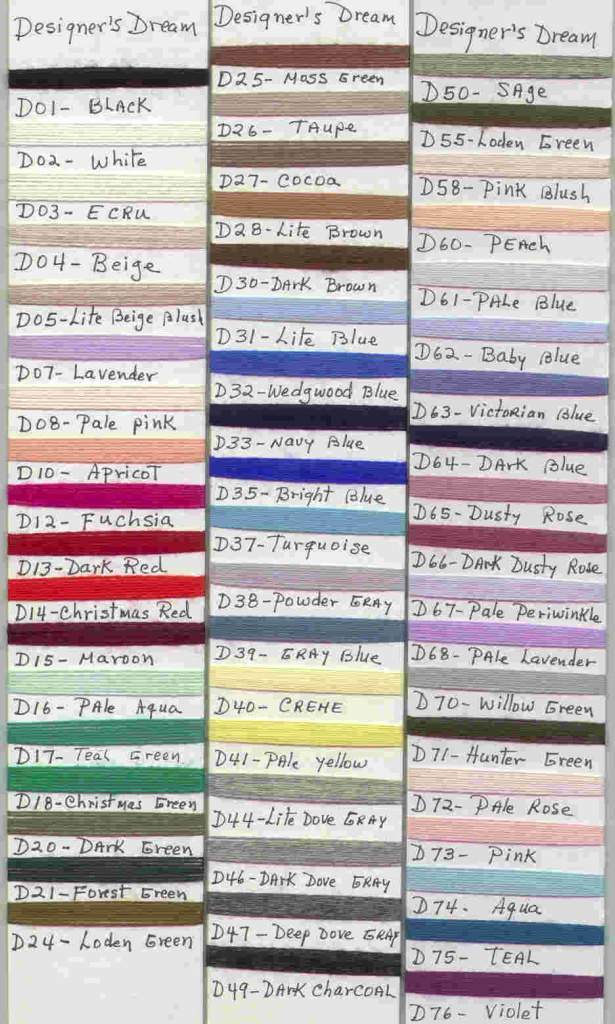 Designer's Dream
D01- BLACK
D02- White
D03- ECRU
D04- Beige
D05-Lite Beige Blush
D07- Lavender
D08- Pale pink
D10- Apricot
D12- Fuchsia
D13-Dark Red
D14-Christmas Red
D15- Maroon
D16- PAle Aqua
D17- Teal Green
D18-Christmas Green
D20- DArk Green
D21-Forest Green
D24- Loden Green
Designer's Dream
D25- Moss Green
D26- TAupe
D27- Cocoa
D28-Lite Brown
D30-DArk Brown
D31- Lite Blue
D32-Wedgwood Blue
D33- NAvy Blue
D35-Bright Blue
D37-Turquoise
D38-Powder GRAY
D39- GRAY Blue
D40- CREME
D41-PAle yellow
D44-Lite Dove GRAY
D46-DArk Dove GRAY
D47 - Deep Dove GRAY
D49-DArk CharcoAL
Designer's Dream
D50- SAge
D55-Loden Green
D58-Pink Blush
D60- PEAch
D61-PALe Blue
D62- Baby Blue
D63-Victorian Blue
D64- DArk Blue
D65-Dusty Rose
D66-DArk Dusty Rose
D67-Pale Periwinkle
D68-PAle Lavender
D70- Willow Green
D71-Hunter Green
D72- PAle Rose
D73- Pink
D74- Aqua
D75- TEAL
D76- Violet